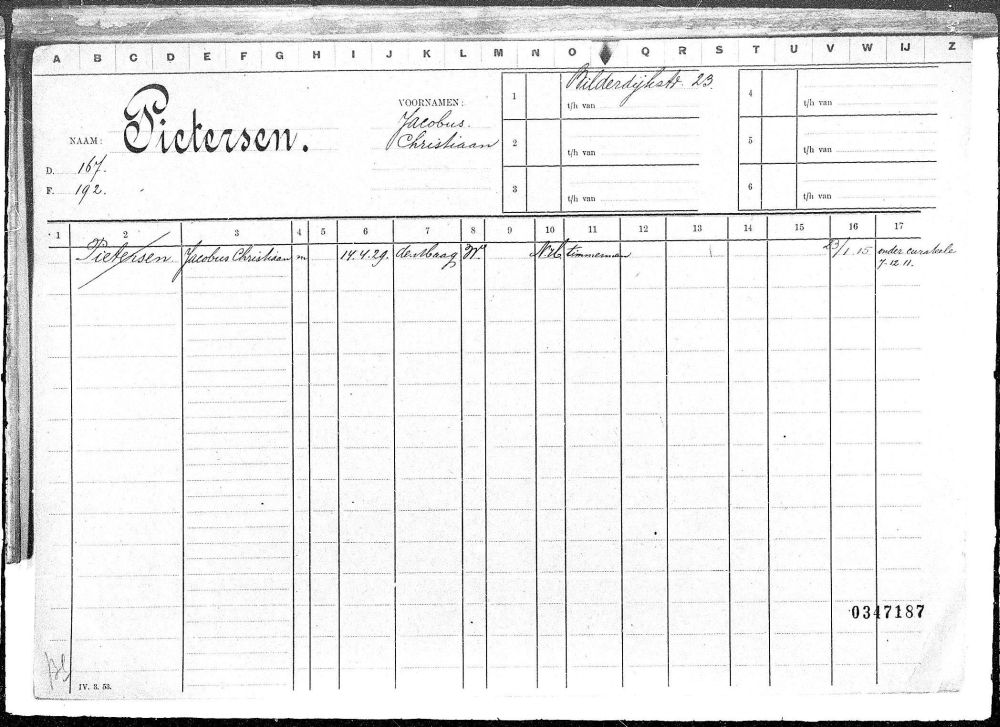 A B C D E F G H I J K L M N O Q R S T U V W IJ Z
NAAM: Pietersen.
D. 167.
F. 192.
VOORNAMEN:
Jacobus.
Christiaan
1 Bilderdijkstr. 23.
t/h van
2
t/h van
3
t/h van
4
t/h van
5
t/h van
6
t/h van
1 2 3 4 5 6 7 8 9 10 11 12 13 14 15 16 17
Pietersen Jacobus Christiaan m 14.4.29. den Haag W. N.H. timmerman 23/1.15 onder curateele
7.12.11.
0347187
IV. 3. 53.